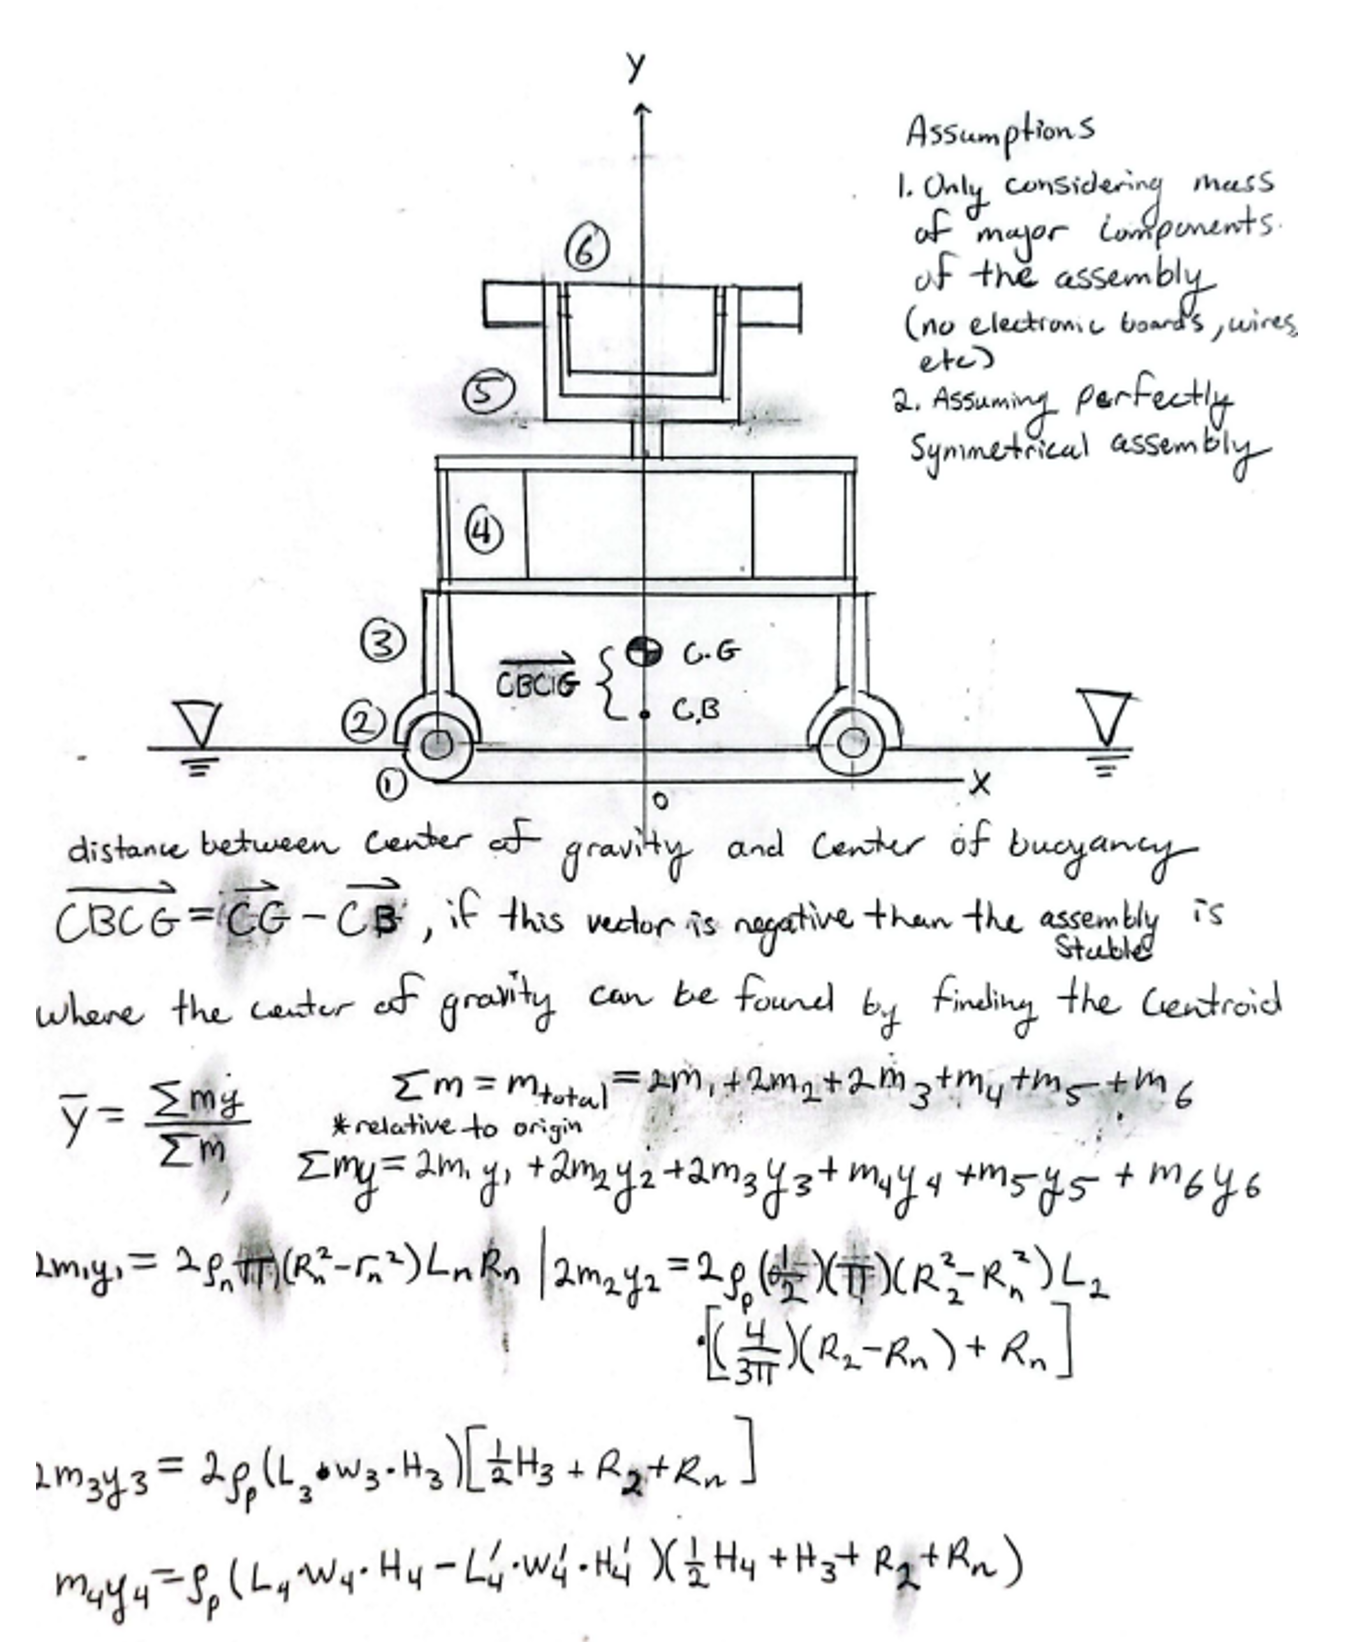 y
Assumptions
1. Only considering mass
of major components.
of the assembly
(no electronic boards, wires,
etc)
2. Assuming perfectly
Symmetrical assembly
⑥
⑤
④
③
②
①
C.G
CBCG
C.B
X
O
distance between center of gravity and center of buoyancy
CBCG = CG - CB, if this vector is negative than the assembly is
Stable
where the center of gravity can be found by finding the Centroid
ȳ = Σmy / Σm
Σm = m_total = 2m₁ + 2m₂ + 2m₃ + m₄ + m₅ + m₆
*relative to origin
Σmy = 2m₁y₁ + 2m₂y₂ + 2m₃y₃ + m₄y₄ + m₅y₅ + m₆y₆
2m₁y₁ = 2ρₙπ(Rₙ²-rₙ²)LₙRₙ | 2m₂y₂ = 2ρₚ(1/2)(π)(R₂²-Rₙ²)L₂
·[(4/3π)(R₂-Rₙ) + Rₙ]
2m₃y₃ = 2ρₚ(L₃·W₃·H₃)[1/2H₃ + R₂ + Rₙ]
m₄y₄ = ρₚ(L₄·W₄·H₄ - L₄'·W₄'·H₄')(1/2H₄ + H₃ + R₂ + Rₙ)